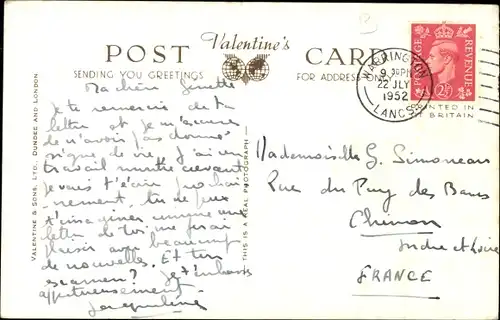 POST Valentine's CARD
SENDING YOU GREETINGS
FOR ADDRESS ONLY
WARRINGTON
9. 30 PM
22 JLY
1952
LANCS
POSTAGE
REVENUE
2½D
PRINTED IN
T BRITAIN
VALENTINE & SONS, LTD. DUNDEE AND LONDON.
THIS IS A REAL PHOTOGRAPH
Ma chère Ginette
Je te remercie de ta
lettre et je m'excuse
de n'avoir pas donné
signe de vie. J'ai un
travail monstre crevant
je vais t'écrire prochai-
nement. Tu ne peux
t'imaginer comme une
lettre de toi me ferai
plaisir avec beaucoup
de nouvelles. Et ton
examen? Je t'embrasse
affectueusement.
Jacqueline
Mademoiselle G. Simoneau
Rue du Puy des Bancs
Chinon
Indre et Loire
FRANCE